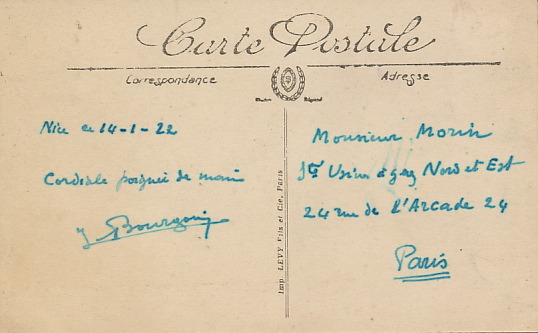 Carte Postale
Correspondance
Adresse
Nice ce 14-1-22
Cordiale poignée de main
J Bourgoin
Imp. LEVY Fils et Cie, Paris
Monsieur Morin
Sté Usines à gaz Nord et Est
24 rue de l'Arcade 24
Paris